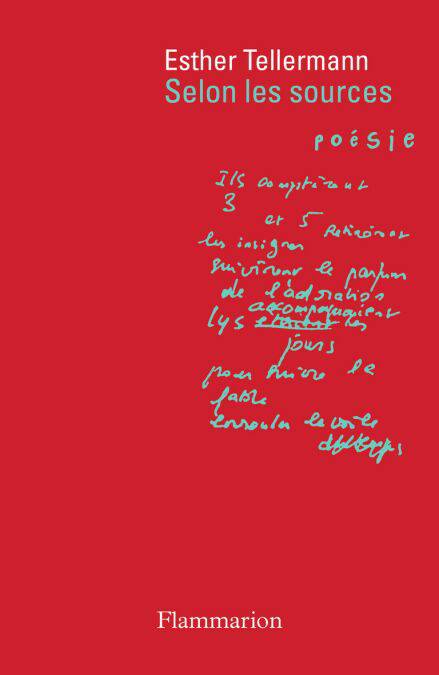 Esther Tellermann
Selon les sources
poésie
Ils comptèrent
3
et 5 Retirèrent
les insignes
suivirent le parfum
de l'adoration
accompagnaient
lys les
jours
pour suivre la
fable
le voile
Flammarion